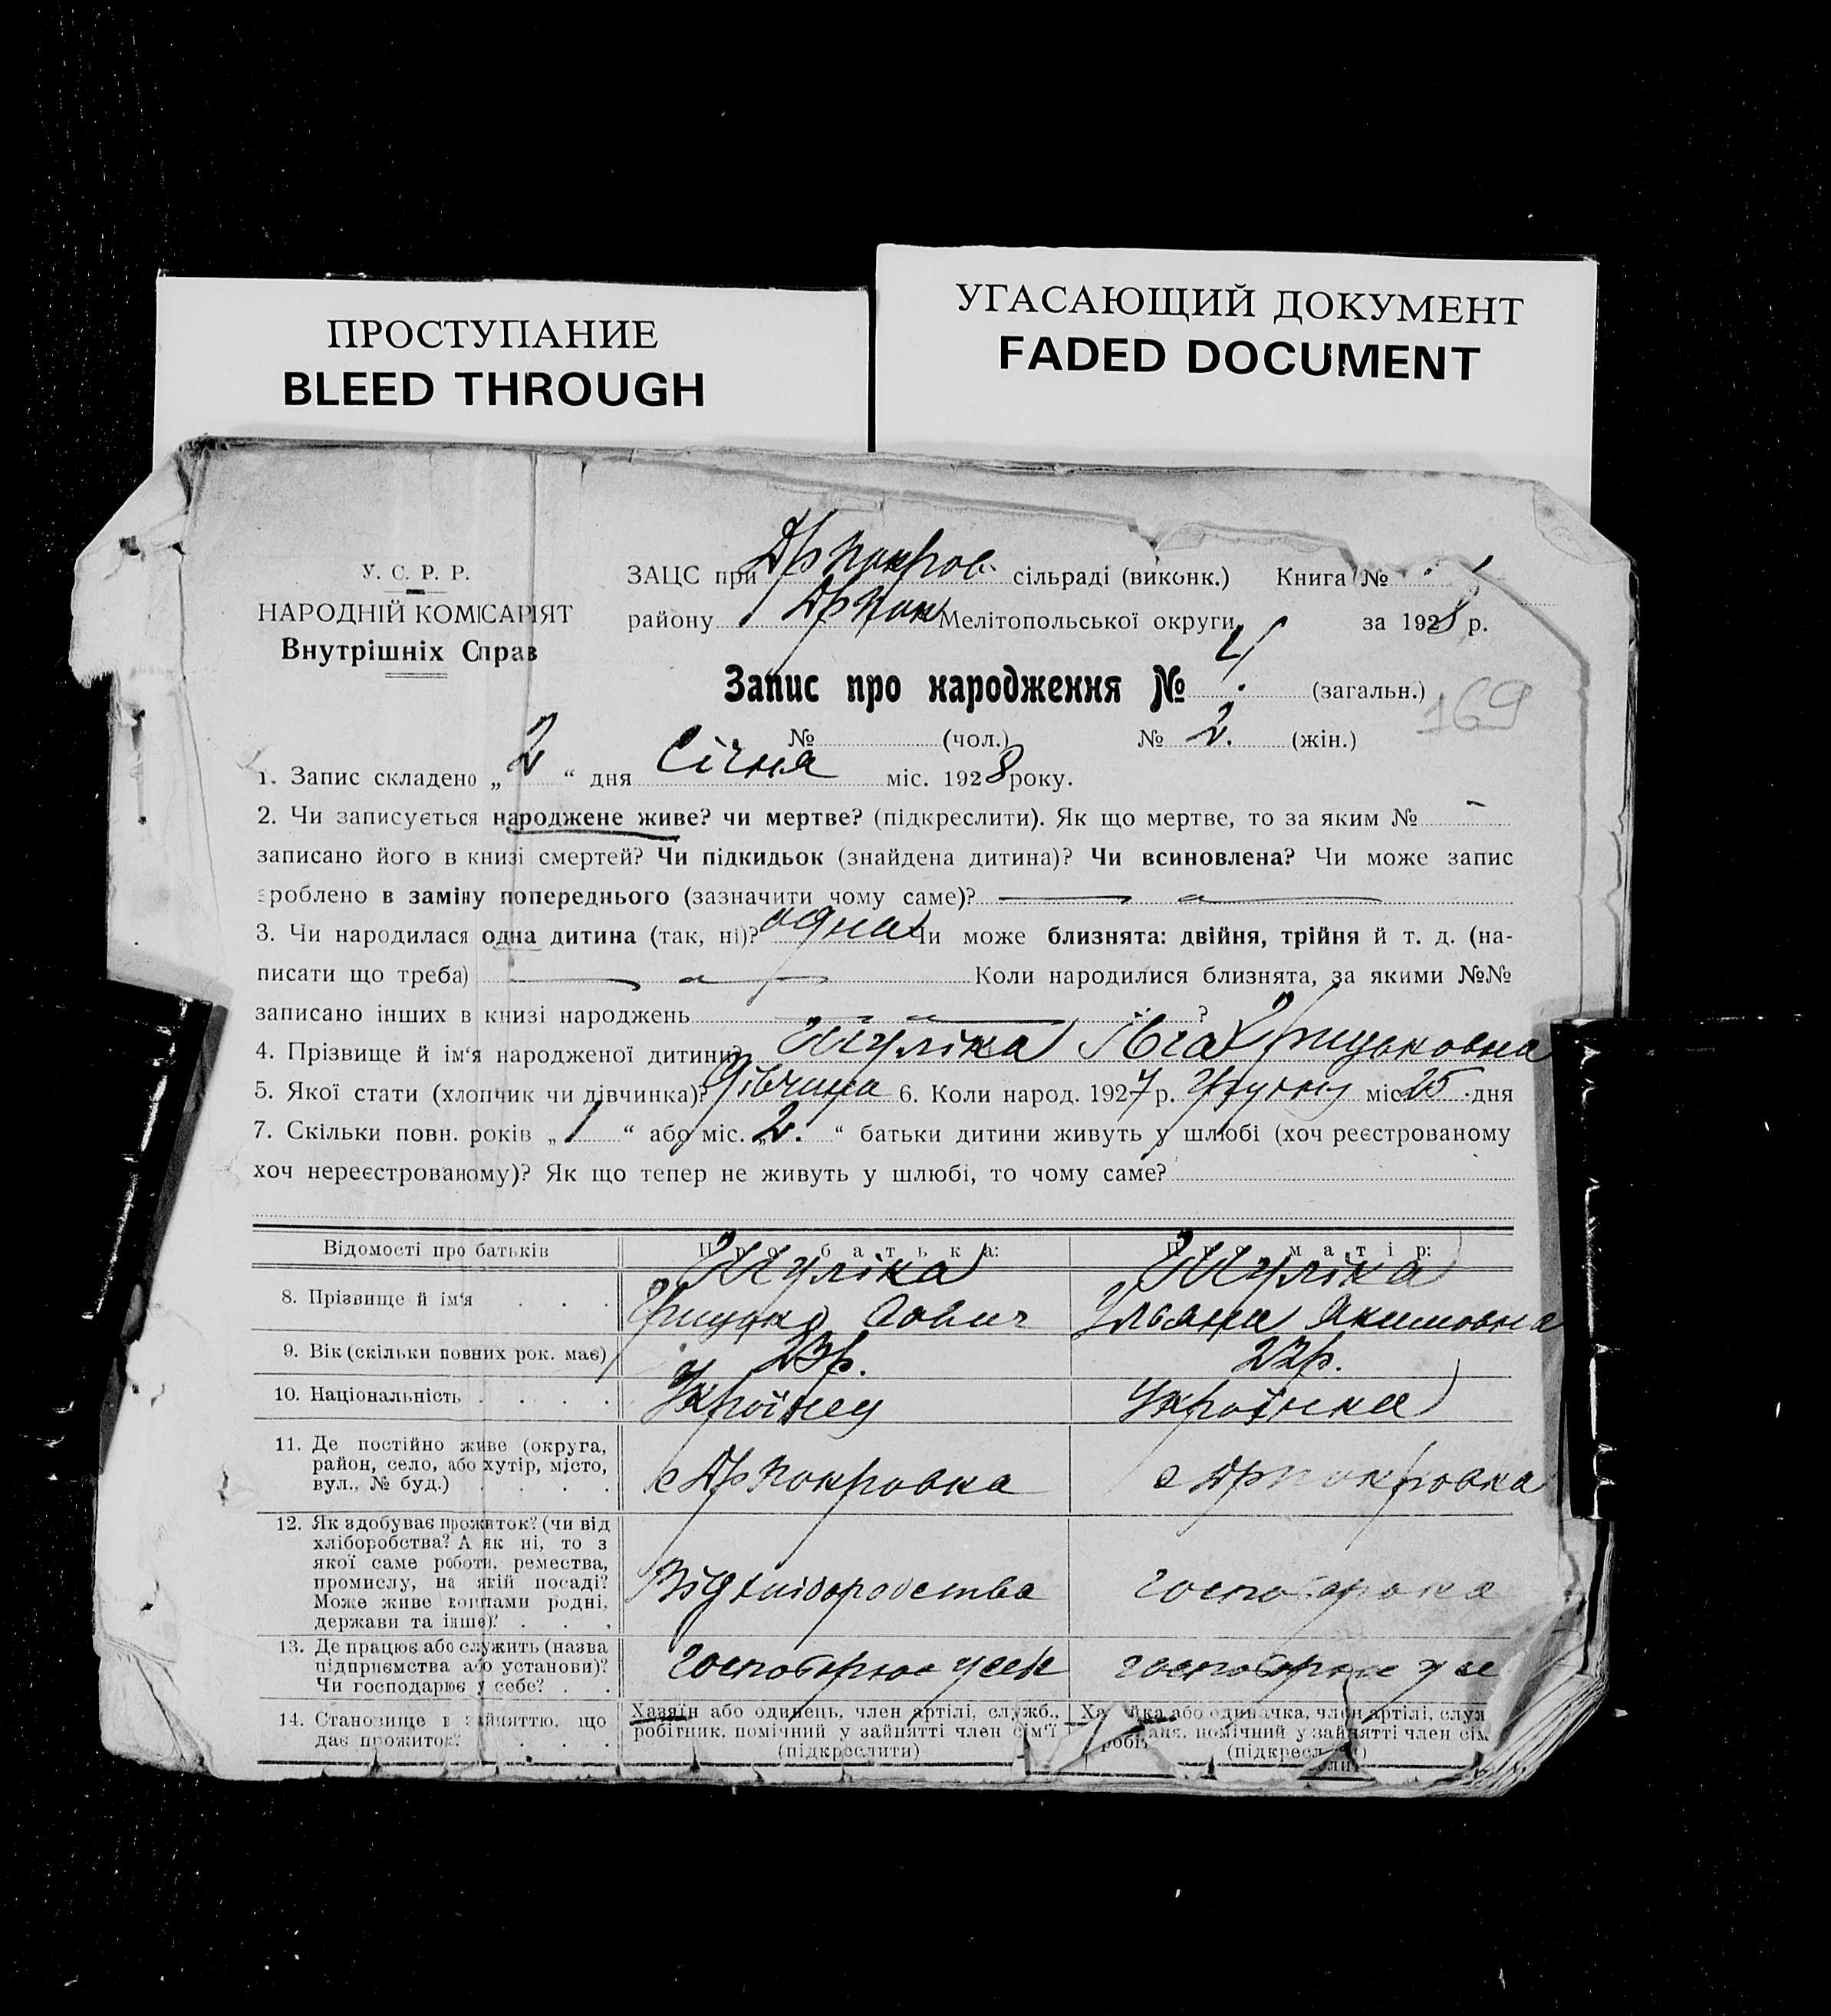 ПРОСТУПАНИЕ
BLEED THROUGH
УГАСАЮЩИЙ ДОКУМЕНТ
FADED DOCUMENT
У. С. Р. Р.
НАРОДНІЙ КОМІСАРІЯТ
Внутрішніх Справ
ЗАЦС при Др Покров. сільраді (виконк.) Книга №
району Др Пок Мелітопольської округи за 1928 р.
Запис про народження № 4. (загальн.)
169
№ (чол.) № 2. (жін.)
1. Запис складено „2“ дня Січня міс. 1928 року.
2. Чи записується народжене живе? чи мертве? (підкреслити). Як що мертве, то за яким № —
записано його в книзі смертей? Чи підкидьок (знайдена дитина)? Чи всиновлена? Чи може запис
зроблено в заміну попереднього (зазначити чому саме)?
3. Чи народилася одна дитина (так, ні)? одна Чи може близнята: двійня, трійня й т. д. (на-
писати що треба) Коли народилися близнята, за якими №№
записано інших в книзі народжень ?
4. Прізвище й ім‘я народженої дитини? Ївга Грицьковна
5. Якої стати (хлопчик чи дівчинка)? Дівчина 6. Коли народ. 1927 р. Грудню міс. 25 дня
7. Скільки повн. років „1“ або міс. „2.“ батьки дитини живуть у шлюбі (хоч реєстрованому
хоч нереєстрованому)? Як що тепер не живуть у шлюбі, то чому саме?
Відомості про батьків Про батька: Про матір:
8. Прізвище й ім‘я . . .
Грицько Ульяна Якимовна
9. Вік (скільки повних рок. має) 23р. 22р.
10. Національність . . . . Українец Українка
11. Де постійно живе (округа,
район, село, або хутір, місто,
вул., № буд.) . . . .
с Др Покровка с Др Покровка
12. Як здобуває прожиток? (чи від
хліборобства? А як ні, то з
якої саме роботи, ремества,
промислу, на якій посаді?
Може живе коштами родні,
держави та інше)? . . .
Від хліборобства господарка
13. Де працює або служить (назва
підприємства або установи)?
Чи господарює у себе? . .
господарює у себе господарює у се
14. Становище в зайняттю, що
дає прожиток? . . .
Хазяїн або одинець, член артілі, служб.,
робітник, помічний у зайнятті член сім‘ї
(підкреслити)
Хазяйка або одиначка, член артілі, служ
помічний у зайнятті член сім
(підкреслити)